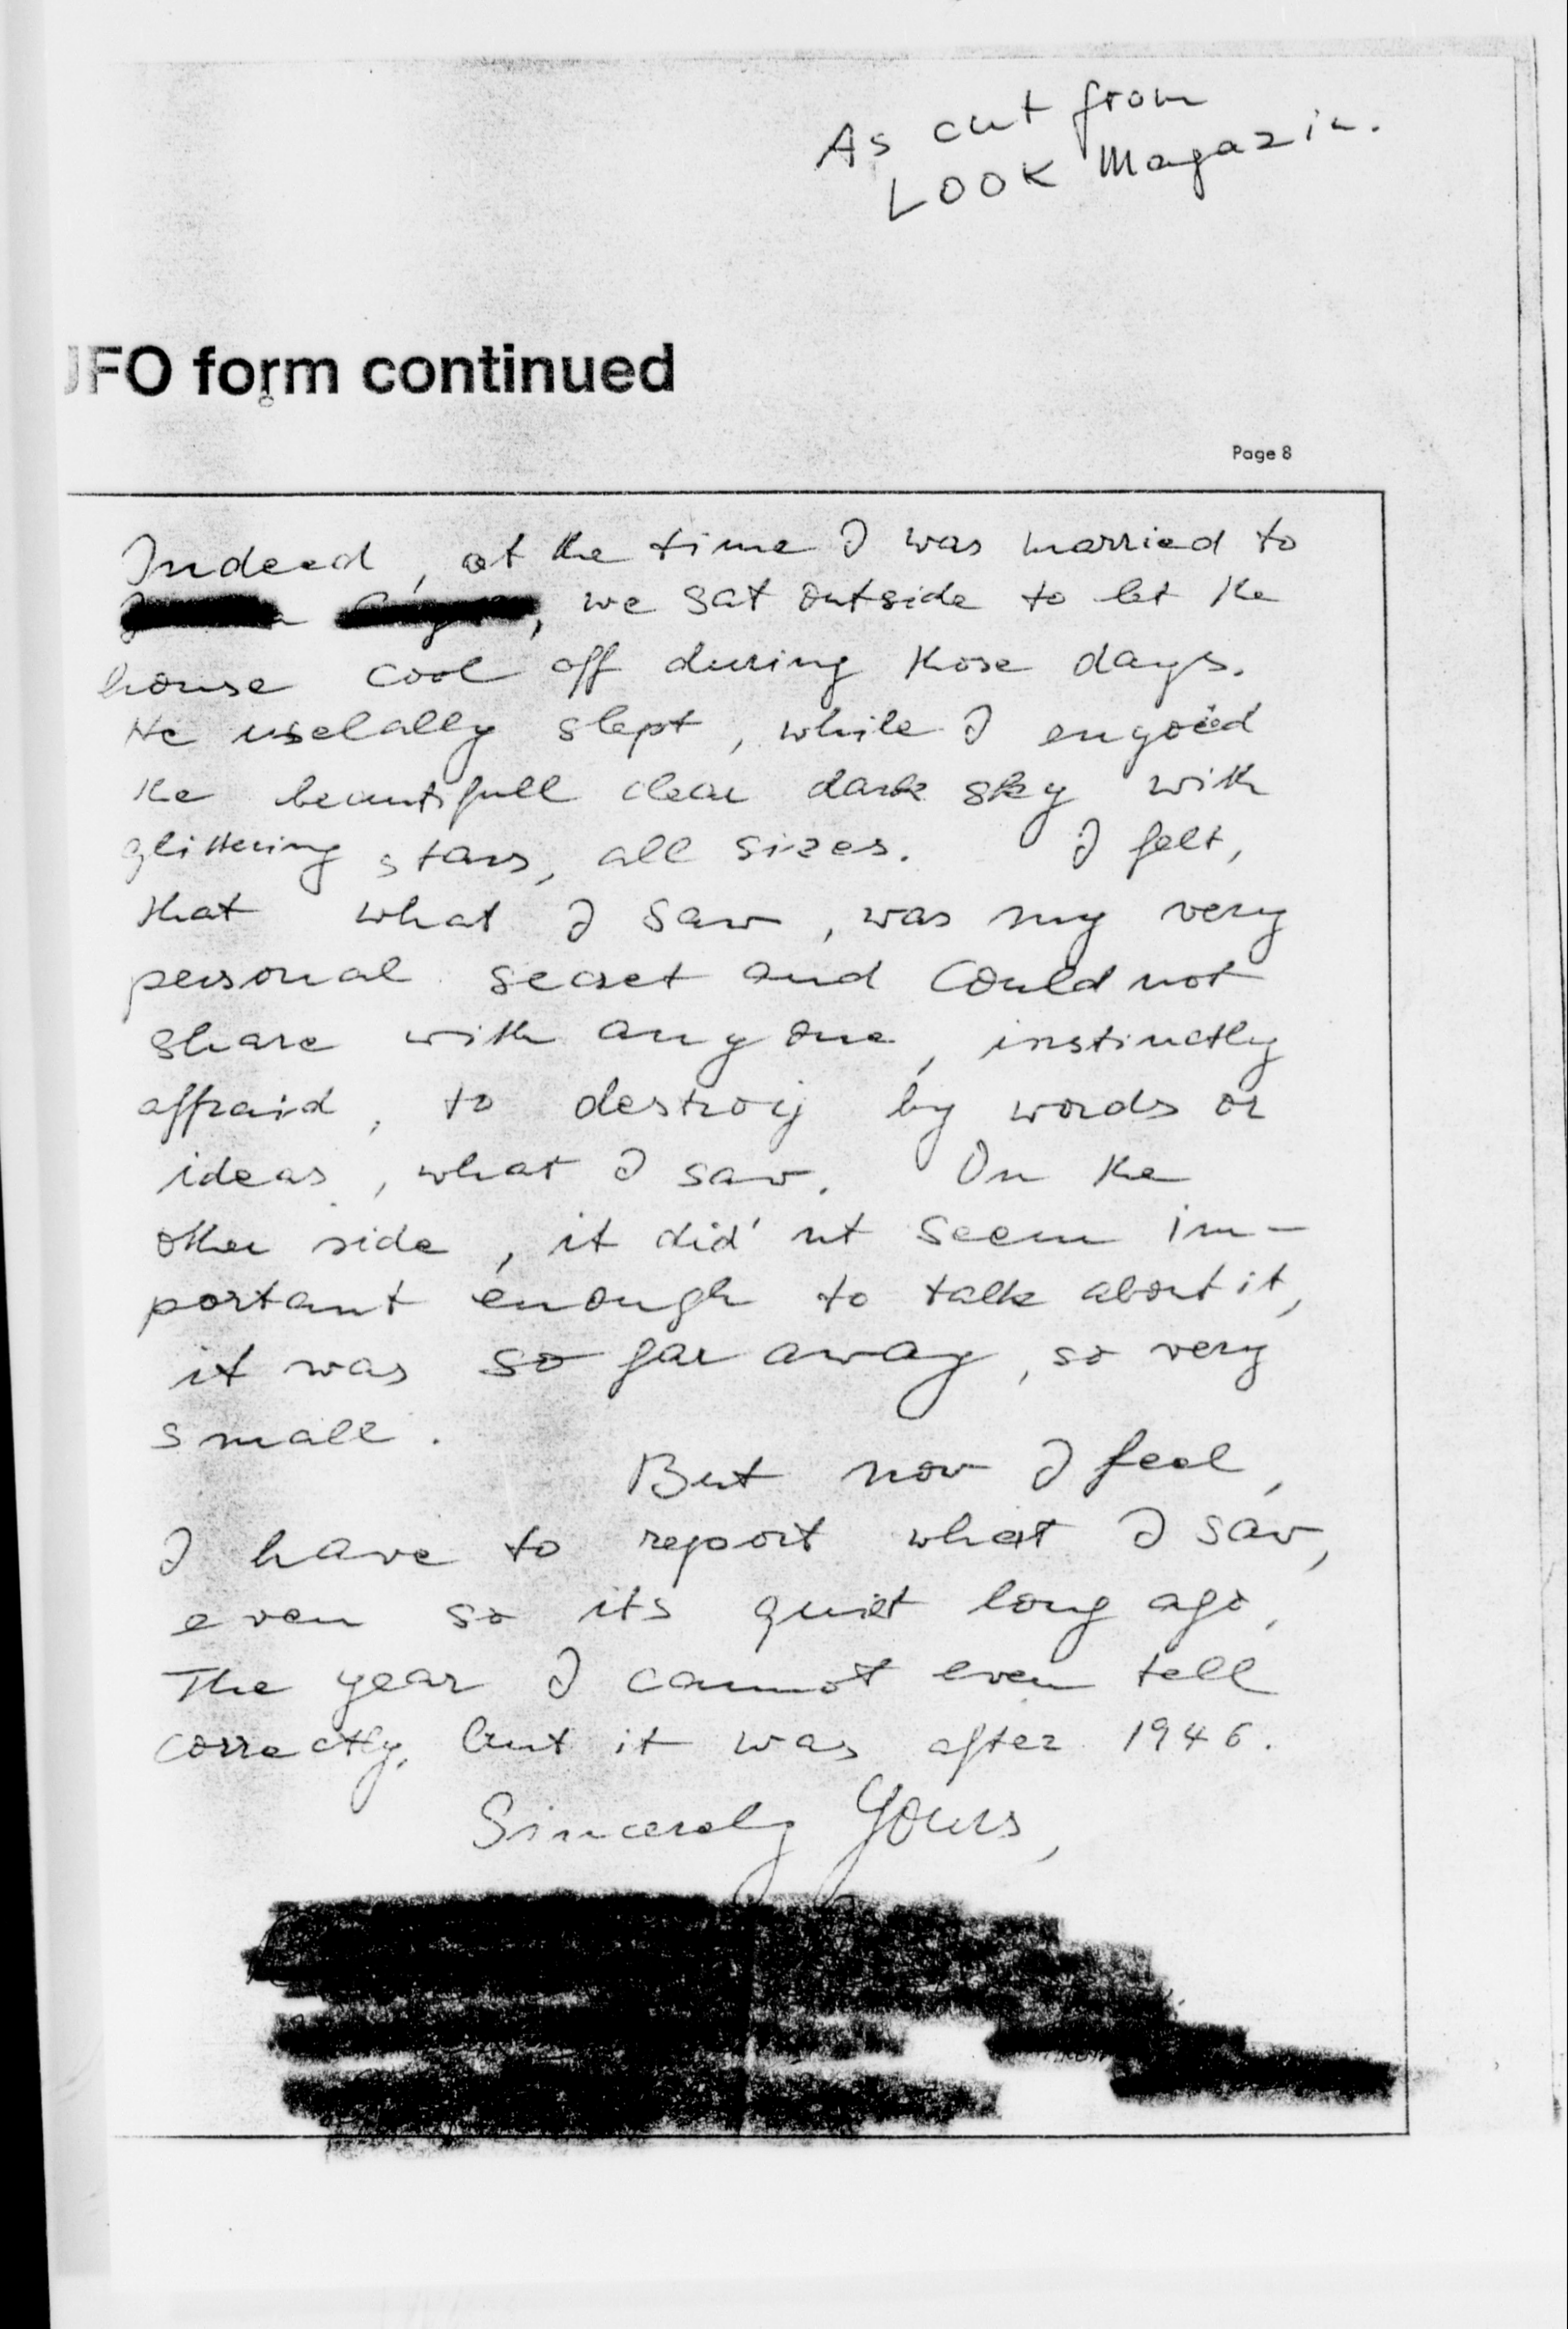 As cut from
LOOK Magazin.
UFO form continued
Page 8
Indeed, at the time I was married to
, we sat outside to let the
house cool off during those days.
He uselally slept, while I engoied
the beautifull clear dark sky with
glittering stars, all sizes. I felt,
that what I saw, was my very
personal secret and could not
share with anyone, instinctly
affraid, to destroy by words or
ideas, what I saw. On the
other side, it did'nt seem im-
portant enough to talk about it,
it was so far away, so very
small.
But now I feel,
I have to report what I saw,
even so its quiet long ago,
The year I cannot even tell
correctly, but it was after 1946.
Sincerely Yours,